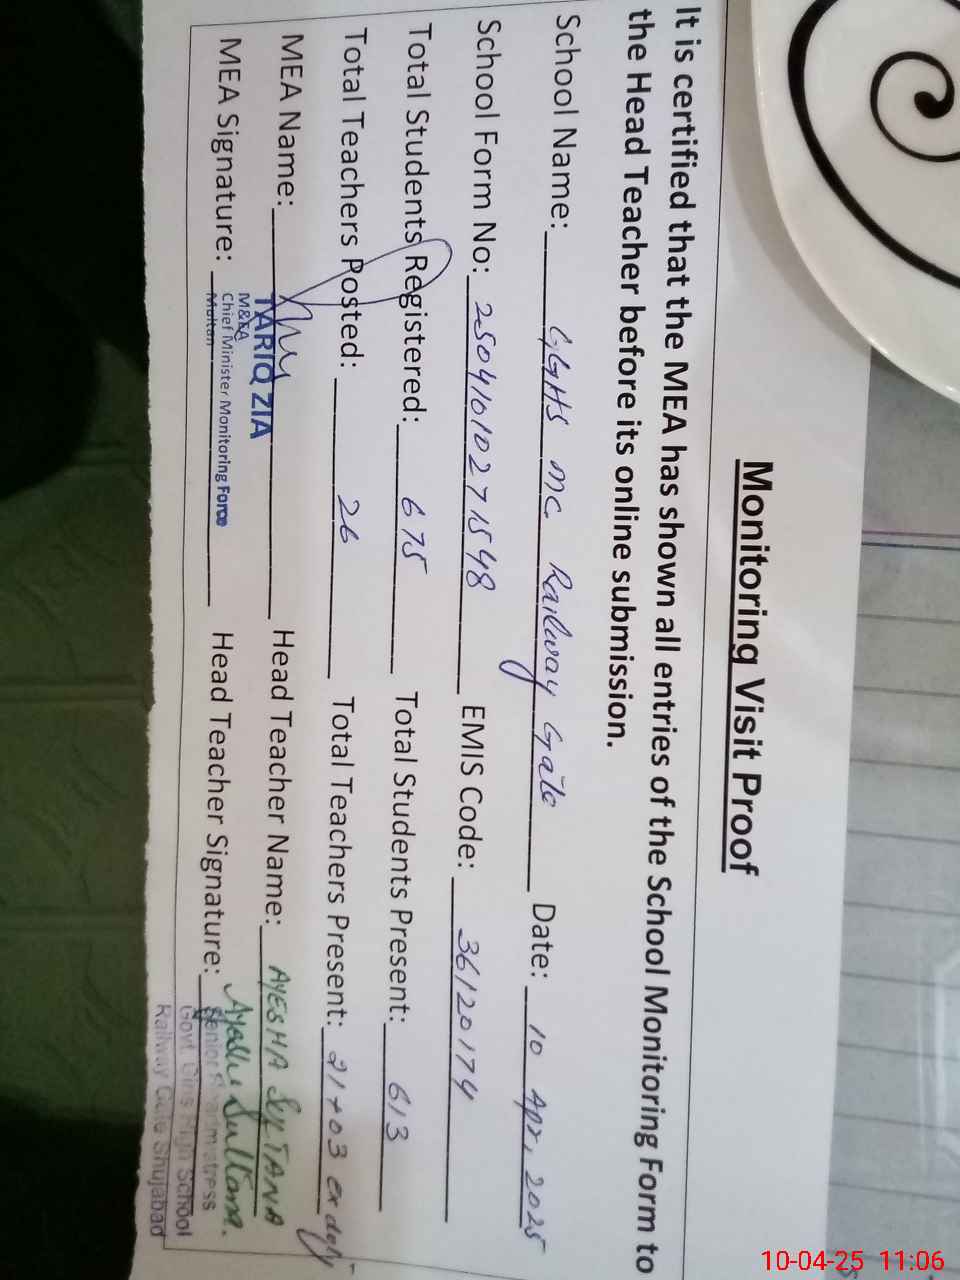 Monitoring Visit Proof
It is certified that the MEA has shown all entries of the School Monitoring Form to
the Head Teacher before its online submission.
School Name: GGHS MC Railway Gate Date: 10 Apr, 2025
School Form No: 2504101027 1548 EMIS Code: 36120174
Total Students Registered: 675 Total Students Present: 613
Total Teachers Posted: 26 Total Teachers Present: 21+03 ex duty
MEA Name: TARIQ ZIA Head Teacher Name: AYESHA SULTANA
M&EA
MEA Signature: Chief Minister Monitoring Force Head Teacher Signature: Ayesha Sultana.
Multan
Senior Headmistress
Govt. Girls High School
Railway Gate Shujabad
10-04-25 11:06